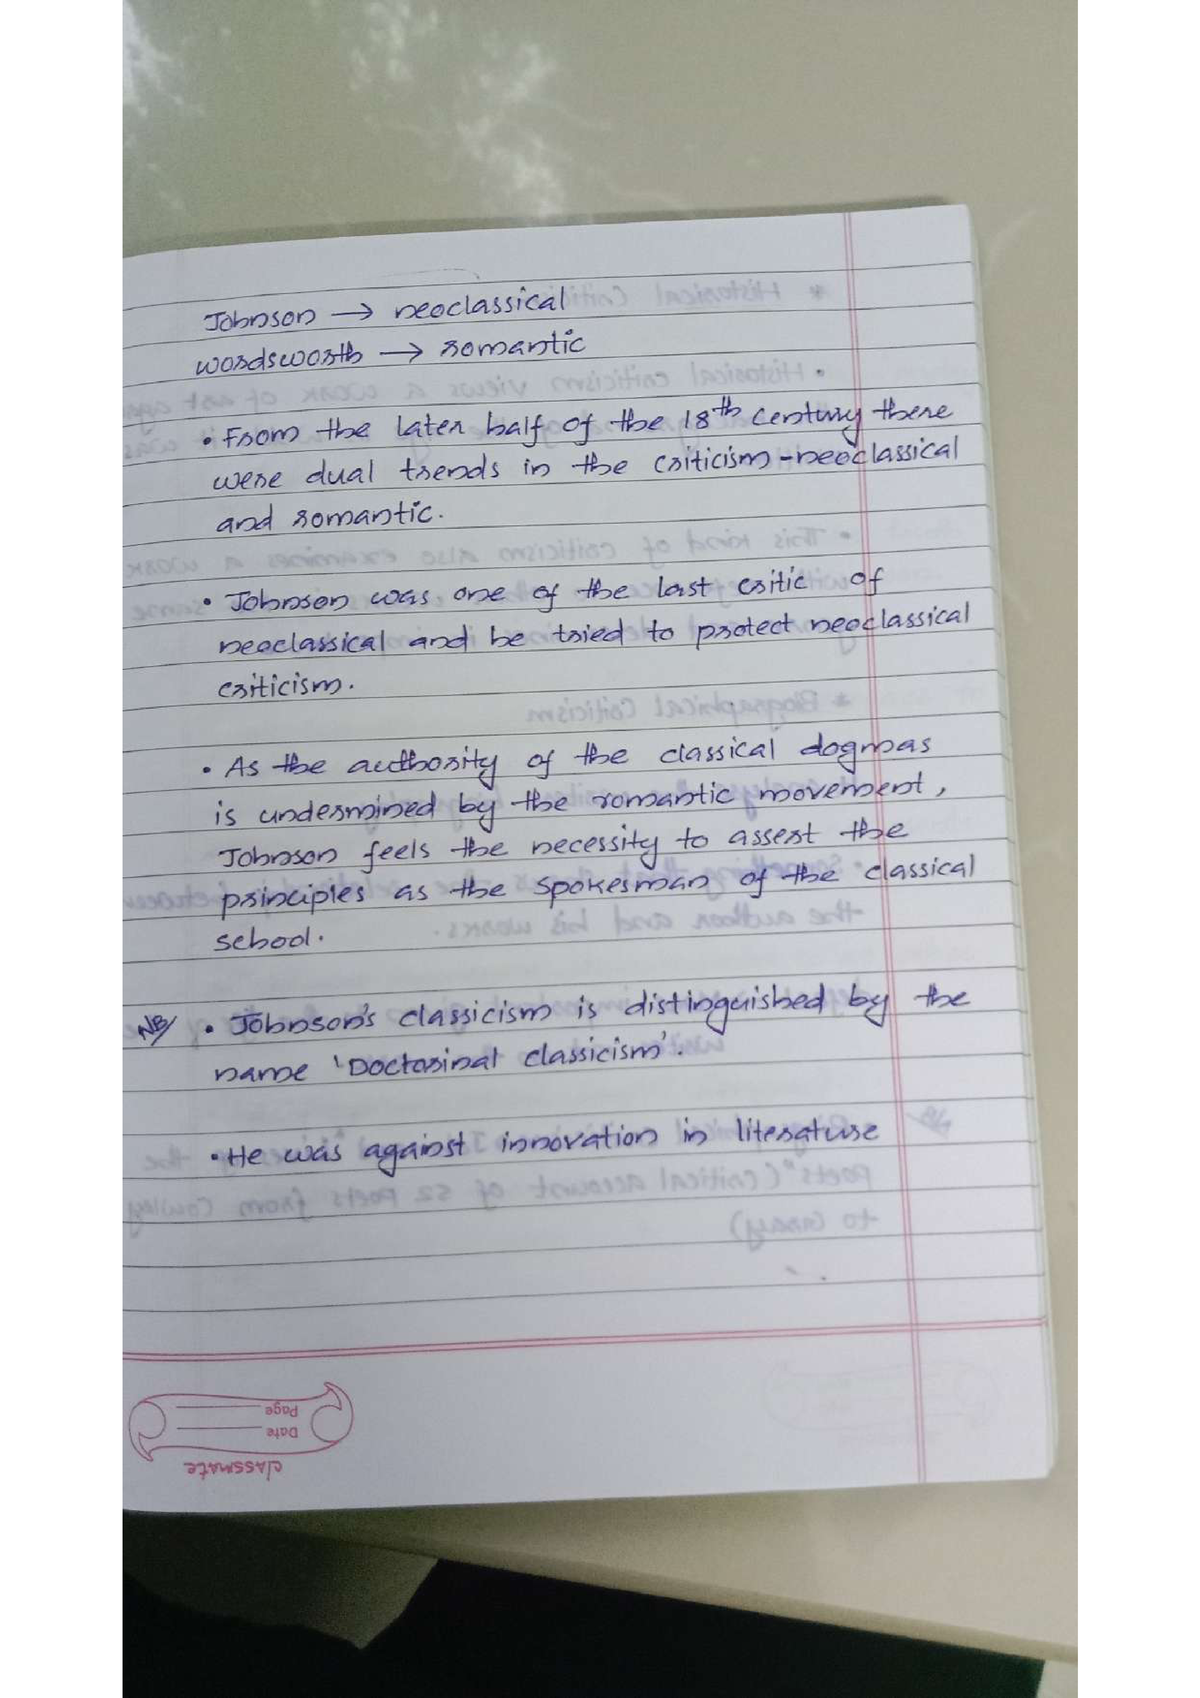 Johnson → neoclassical
wordsworth → romantic
• From the later half of the 18th century there
were dual trends in the criticism - neoclassical
and romantic.
• Johnson was one of the last critic of
neoclassical and he tried to protect neoclassical
criticism.
• As the authority of the classical dogmas
is undermined by the romantic movement,
Johnson feels the necessity to assert the
principles as the spokesman of the classical
school.
NB/ • Johnson's classicism is distinguished by the
name 'Doctorinal classicism'.
• He was against innovation in literature
Page
Date
classmate